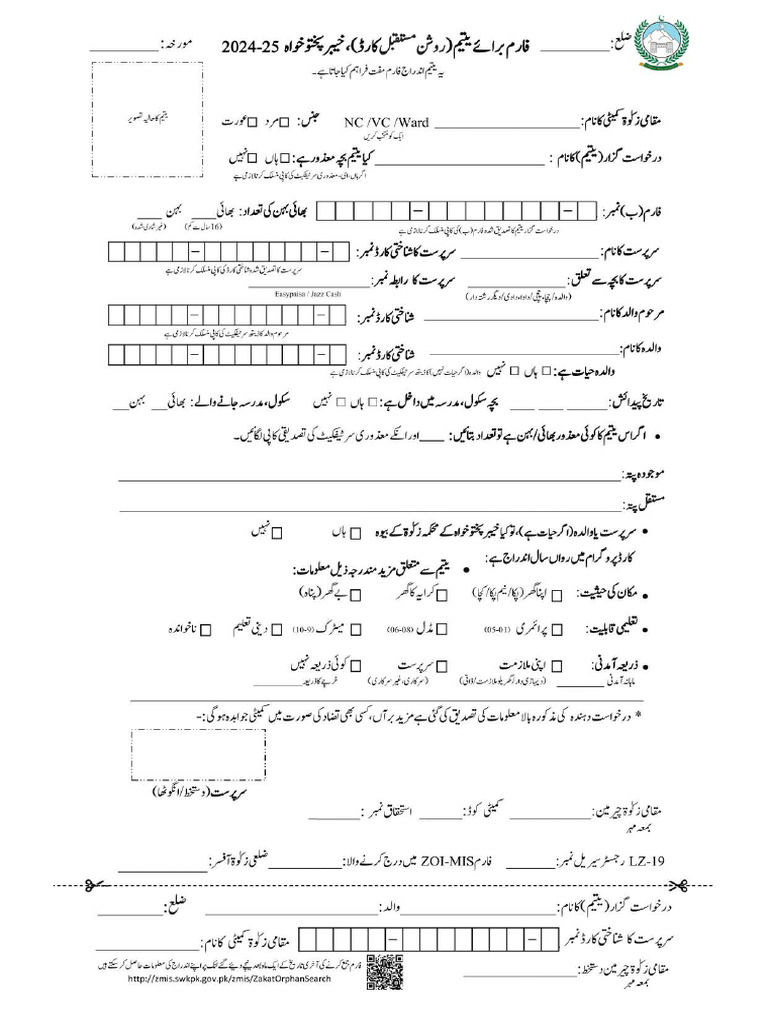 ضلع: ____________ فارم برائے یتیم (روشن مستقبل کارڈ)، خیبر پختونخواہ 25-2024 مورخہ: ____________
یہ یتیم اندراج فارم مفت فراہم کیا جاتا ہے۔
یتیم کا حالیہ تصویر
مقامی زکوٰۃ کمیٹی کا نام: ____________ NC /VC /Ward جنس: □ مرد □ عورت
ایک کو منتخب کریں
درخواست گزار (یتیم) کا نام: ____________ کیا یتیم بچہ معذور ہے: □ ہاں □ نہیں
اگر ہاں، تو معذوری سرٹیفکیٹ کی کاپی منسلک کرنا لازمی ہے
فارم (ب) نمبر: بھائی بہن کی تعداد: بھائی ____ بہن ____
درخواست گزار یتیم کا تصدیق شدہ فارم (ب) کی کاپی منسلک کرنا لازمی ہے (16 سال سے کم) (غیر شادی شدہ)
سرپرست کا نام: ____________ سرپرست کا شناختی کارڈ نمبر:
سرپرست کا تصدیق شدہ شناختی کارڈ کی کاپی منسلک کرنا لازمی ہے
سرپرست کا بچہ سے تعلق: ____________ سرپرست کا رابطہ نمبر: ____________
(والدہ/چچا، چچی/دادا، دادی/دیگر رشتہ دار) Easypaisa / Jazz Cash
مرحوم والد کا نام: ____________ شناختی کارڈ نمبر:
مرحوم والد کا ڈیتھ سرٹیفکیٹ کی کاپی منسلک کرنا لازمی ہے
والدہ کا نام: ____________ شناختی کارڈ نمبر:
والدہ حیات ہے: □ ہاں □ نہیں والدہ (اگر حیات نہیں) کا ڈیتھ سرٹیفکیٹ کی کاپی منسلک کرنا لازمی ہے
تاریخ پیدائش: ____ ____ ____ بچہ سکول، مدرسہ میں داخل ہے: □ ہاں □ نہیں سکول، مدرسہ جانے والے: بھائی ___ بہن ___
• اگر اس یتیم کا کوئی معذور بھائی/بہن ہے تو تعداد بتائیں: ____ اور انکے معذوری سرٹیفکیٹ کی تصدیقی کاپی لگائیں۔
موجودہ پتہ: ____________
مستقل پتہ: ____________
• سرپرست یا والدہ (اگر حیات ہے)، تو کیا خیبر پختونخواہ کے محکمہ زکوٰۃ کے بیوہ □ ہاں □ نہیں
کارڈ پروگرام میں رواں سال اندراج ہے:
• یتیم سے متعلق مزید مندرجہ ذیل معلومات:
• مکان کی حیثیت: □ اپنا گھر (پکا/نیم پکا/کچا) □ کرایہ کا گھر □ بے گھر (پناہ)
• تعلیمی قابلیت: □ پرائمری (05-01) □ مڈل (08-06) □ میٹرک (10-9) □ دینی تعلیم □ ناخواندہ
• ذریعہ آمدنی: □ اپنی ملازمت □ سرپرست □ کوئی ذریعہ نہیں
ماہانہ آمدنی ________ (دیہاڑی دار/گھریلو ملازمت/ذاتی) (سرکاری، غیر سرکاری) خرچے کا ذریعہ ____________
* درخواست دہندہ کی مذکورہ بالا معلومات کی تصدیق کی گئی ہے مزید برآں، کسی بھی تضاد کی صورت میں کمیٹی جوابدہ ہوگی:-
سرپرست (دستخط/انگوٹھا)
مقامی زکوٰۃ چیرمین: ____________ کمیٹی کوڈ: ________ استحقاق نمبر: ________
بمعہ مہر
LZ-19 رجسٹر سیریل نمبر: ________ فارم ZOI-MIS میں درج کرنے والا: ____________ ضلعی زکوٰۃ آفسر: ____________
درخواست گزار (یتیم) کا نام: ____________ والد: ____________ ضلع: ____________
سرپرست کا شناختی کارڈ نمبر مقامی زکوٰۃ کمیٹی کا نام: ____________
مقامی زکوٰۃ چیرمین دستخط: ____________
بمعہ مہر
فارم جمع کرنے کی آخری تاریخ کے ایک ماہ بعد نیچے دیئے گئے لنک پر اپنے اندراج کی معلومات حاصل کر سکتے ہیں
http://zmis.swkpk.gov.pk/zmis/ZakatOrphanSearch